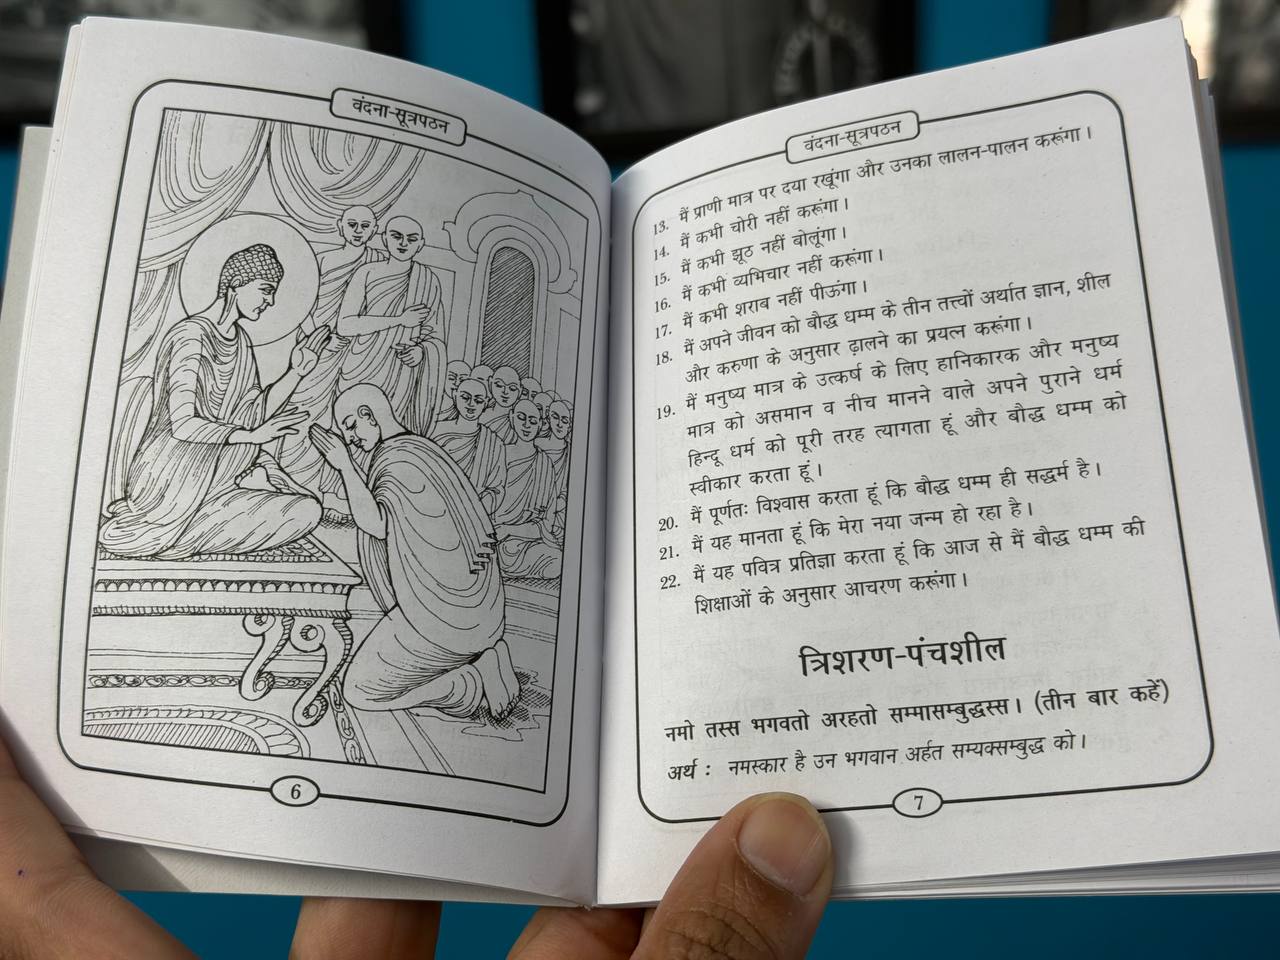 वंदना-सूत्रपठन
6
वंदना-सूत्रपठन
13. मैं प्राणी मात्र पर दया रखूंगा और उनका लालन-पालन करूंगा।
14. मैं कभी चोरी नहीं करूंगा।
15. मैं कभी झूठ नहीं बोलूंगा।
16. मैं कभी व्यभिचार नहीं करूंगा।
17. मैं कभी शराब नहीं पीऊंगा।
18. मैं अपने जीवन को बौद्ध धम्म के तीन तत्त्वों अर्थात ज्ञान, शील
और करुणा के अनुसार ढ़ालने का प्रयत्न करूंगा।
19. मैं मनुष्य मात्र के उत्कर्ष के लिए हानिकारक और मनुष्य
मात्र को असमान व नीच मानने वाले अपने पुराने धर्म
हिन्दू धर्म को पूरी तरह त्यागता हूं और बौद्ध धम्म को
स्वीकार करता हूं।
20. मैं पूर्णतः विश्वास करता हूं कि बौद्ध धम्म ही सद्धर्म है।
21. मैं यह मानता हूं कि मेरा नया जन्म हो रहा है।
22. मैं यह पवित्र प्रतिज्ञा करता हूं कि आज से मैं बौद्ध धम्म की
शिक्षाओं के अनुसार आचरण करूंगा।
त्रिशरण-पंचशील
नमो तस्स भगवतो अरहतो सम्मासम्बुद्धस्स। (तीन बार कहें)
अर्थ : नमस्कार है उन भगवान अर्हत सम्यक्सम्बुद्ध को।
7